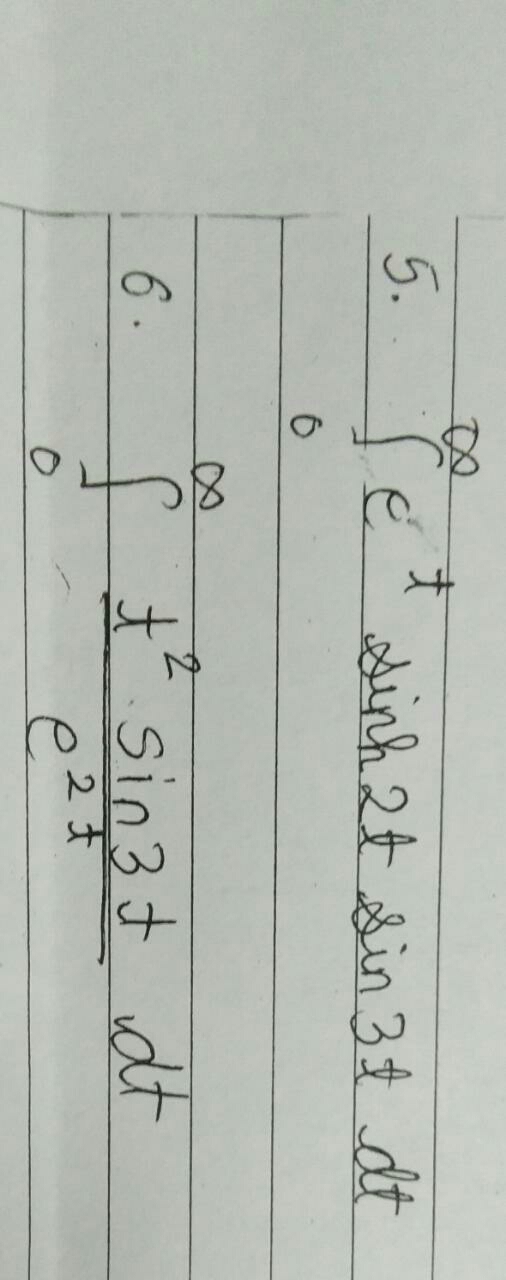 5. ∫₀^∞ e^t sinh2t sin3t dt
6. ∫₀^∞ t² sin3t / e^2t dt